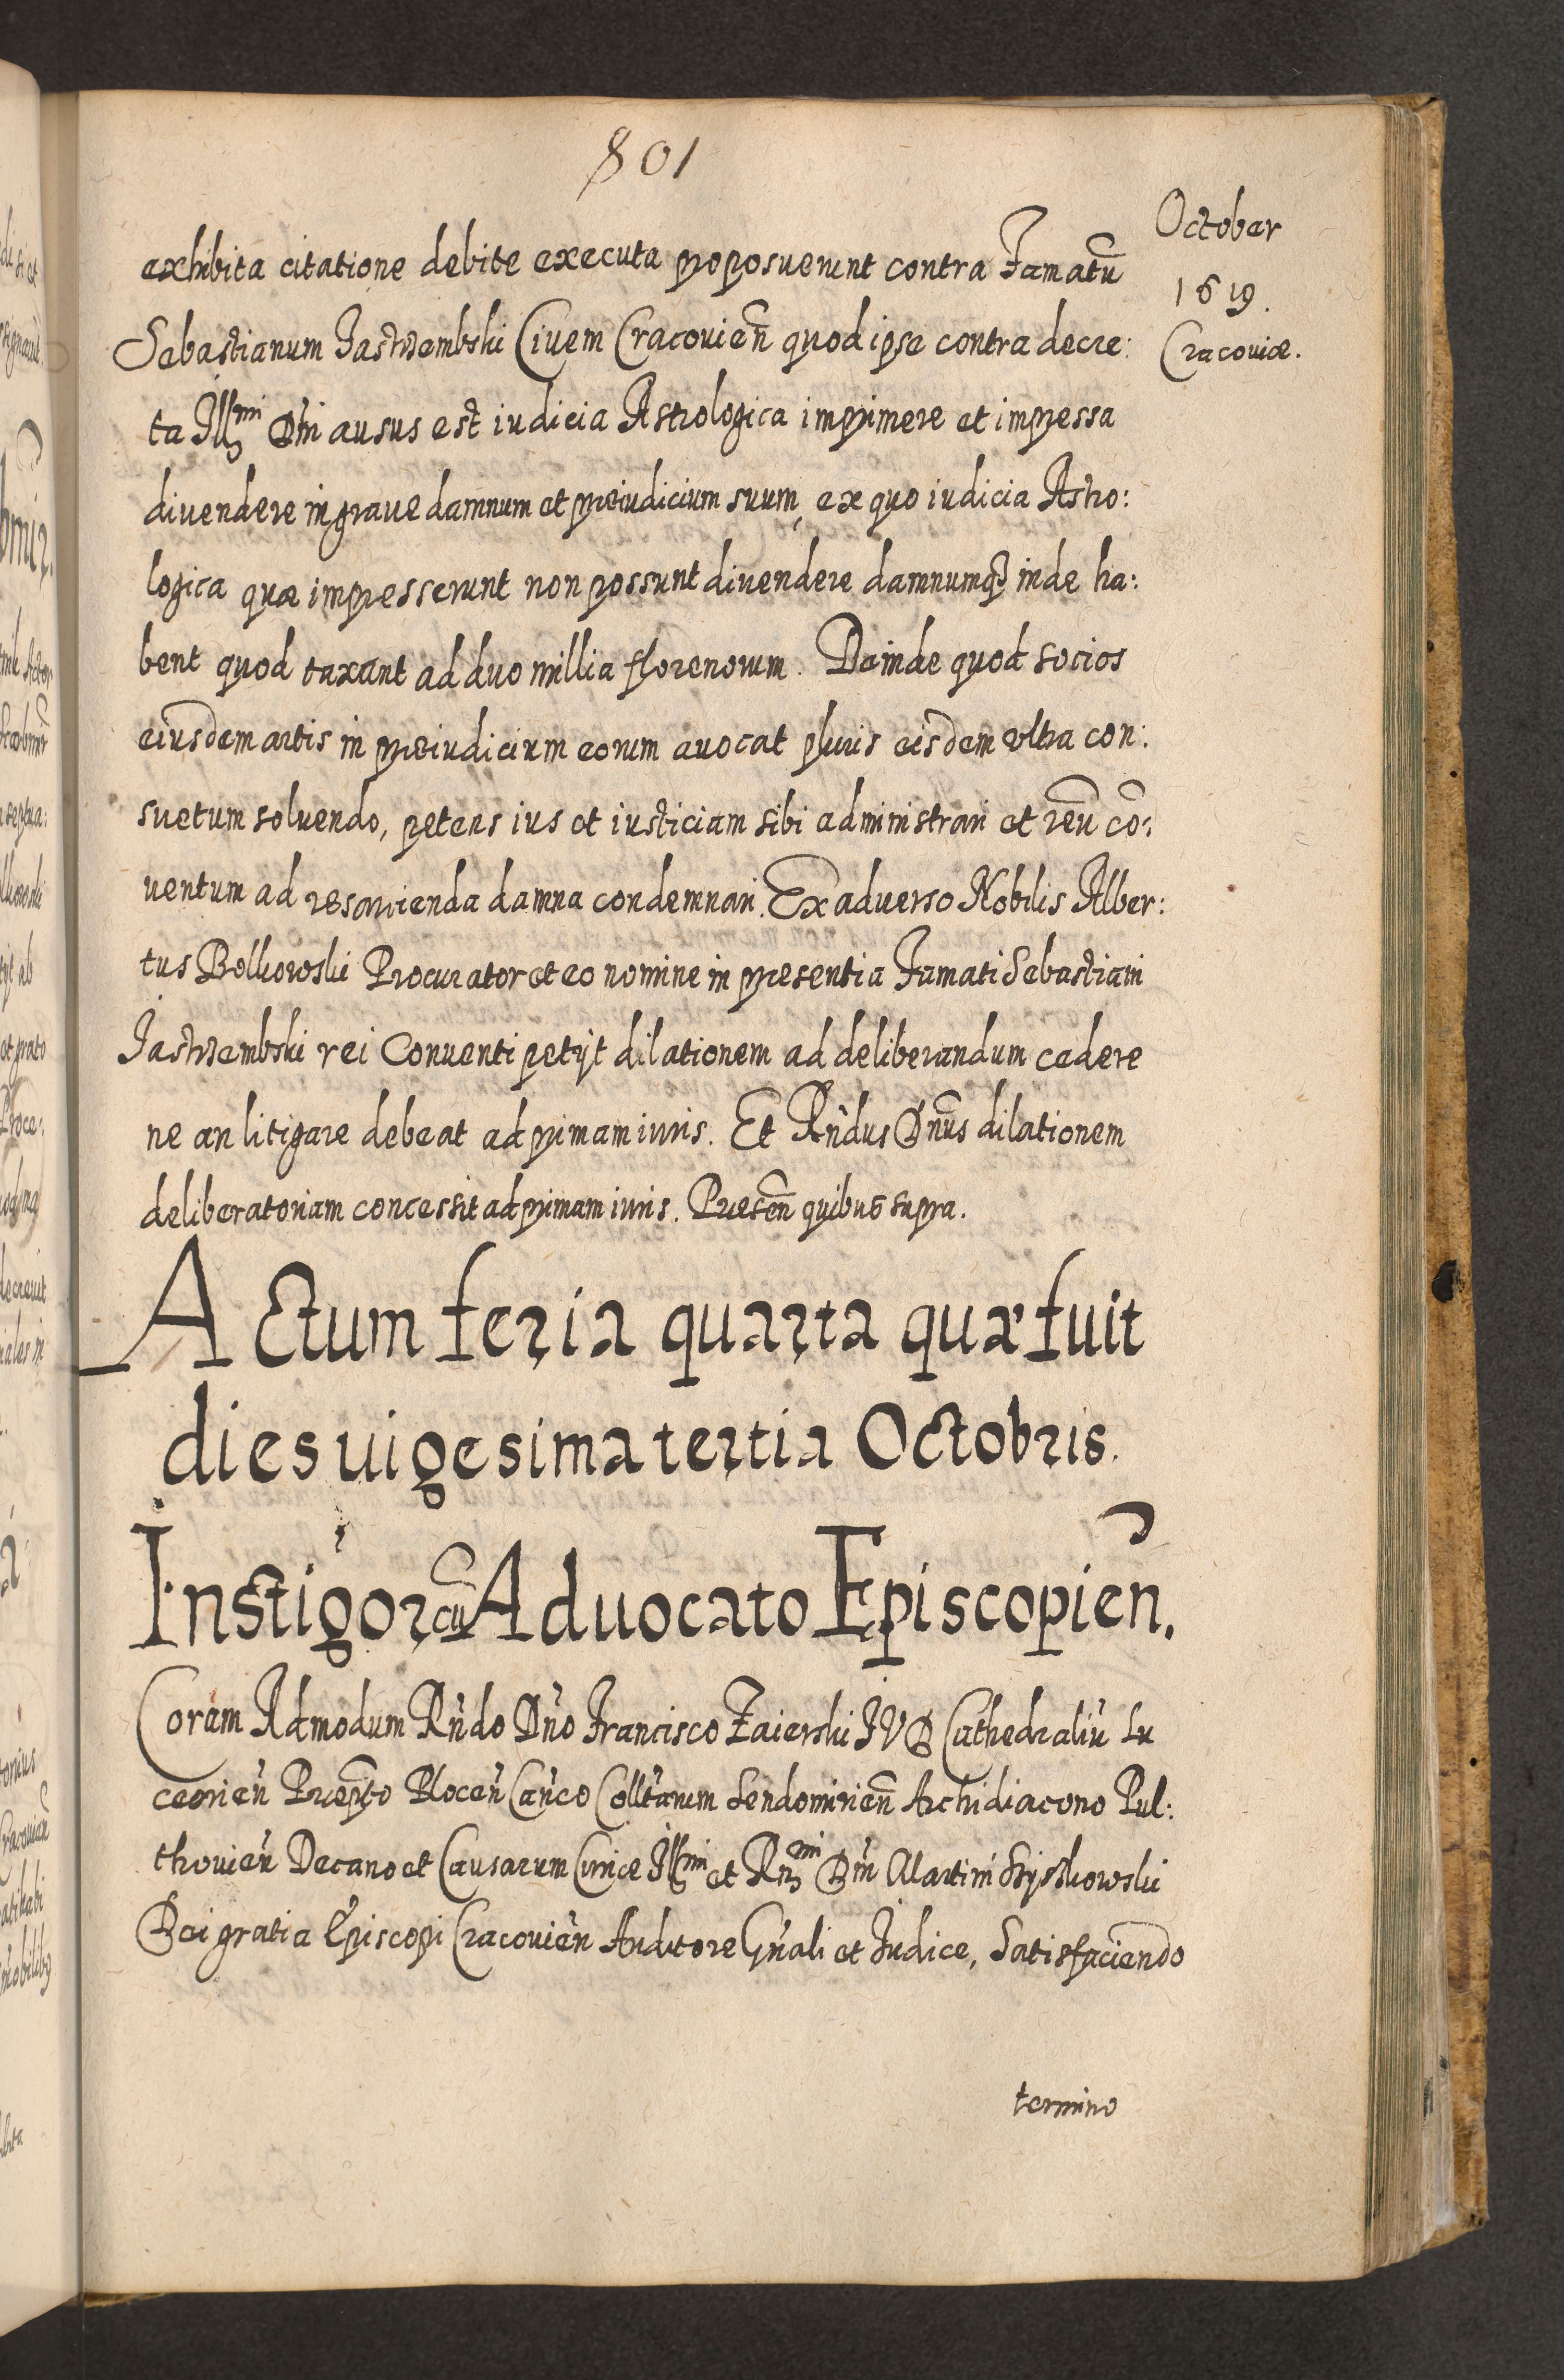 801
October
1619.
Cracouiæ.
exhibita citatione debite executa proposuerunt contra Famatū
Sebastianum Jastrzembski Ciuem Cracouien̄ quod ipse contra decre:
ta Illmi Dn̄i ausus est iudicia Astrologica imprimere et impressa
diuendere in graue damnum et præiudicium suum, ex quo iudicia Astro:
logica quæ impresserunt non possunt diuendere damnumq3 inde ha:
bent quod taxant ad duo millia florenorum. Deinde quod socios
eiusdem artis in præiudicium eorum auocat pluris eisdem vltra con:
suetum soluendo, petens ius et iusticiam sibi administrari et reū cō:
uentum ad resarcienda damna condemnari. Ex aduerso Nobilis Alber:
tus Bolkowski Procurator et eo nomine in presentia Famati Sebastiani
Jastrzembski rei Conuenti petijt dilationem ad deliberandum cedere
ne an litigare debeat ad primam iuris. Et Rn̄dus Dn̄us dilationem
deliberatoriam concessit ad primam iuris. Præsen̄ quibus supra.
Actum feria quarta quæ fuit
dies uigesima tertia Octobris.
Instigor cū Aduocato Episcopien̄.
Coram Admodum Rn̄do Dn̄o Francisco Zaierski JVD Cathedraliū Lu
ceorien̄ Præpto Plocen̄ Can̄co Colltarum Sendomirien̄ Archidiacono Pul:
thouien̄ Decano et Causarum Curiæ Illmi et Rn3mi Dn̄i Martini Szyszkowski
Dei gratia Episcopi Cracouien̄ Auditore Gn̄ali et Judice, Satisfaciendo
termino